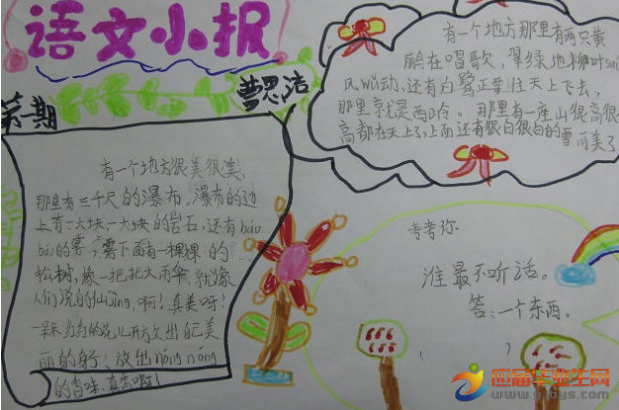 语文小报
曹思洁
第一期
有一个地方很美很美,
那里有三千尺的瀑布,瀑布的边
上有一大块一大块的岩石,还有báo
báo的雾,雾下面有一棵棵的
松树,像一把把大雨伞,就像
人们说的仙jìng,啊!真美呀!
一朵红红的花儿开放出自己美
丽的身子,放出nóng nóng
的香味,真香啊!
有一个地方那里有两只黄
鹂在唱歌,翠绿地柳叶suí
风wǔ动,还有白鹭正要往天上飞去,
那里就是西岭。那里有一座山很高很
高都在天上了,上面还有很白很白的雪可美了
考考你
谁最不听话。
答:一个东西。
( )
应届毕业生网
www.yjbys.com